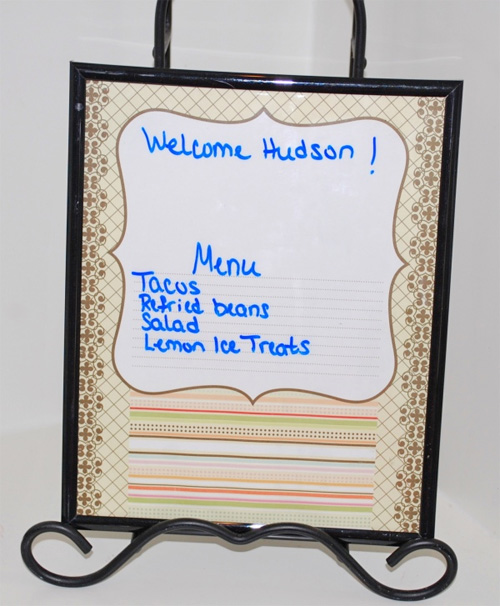 Welcome Hudson !
Menu
Tacos
Refried beans
Salad
Lemon Ice Treats